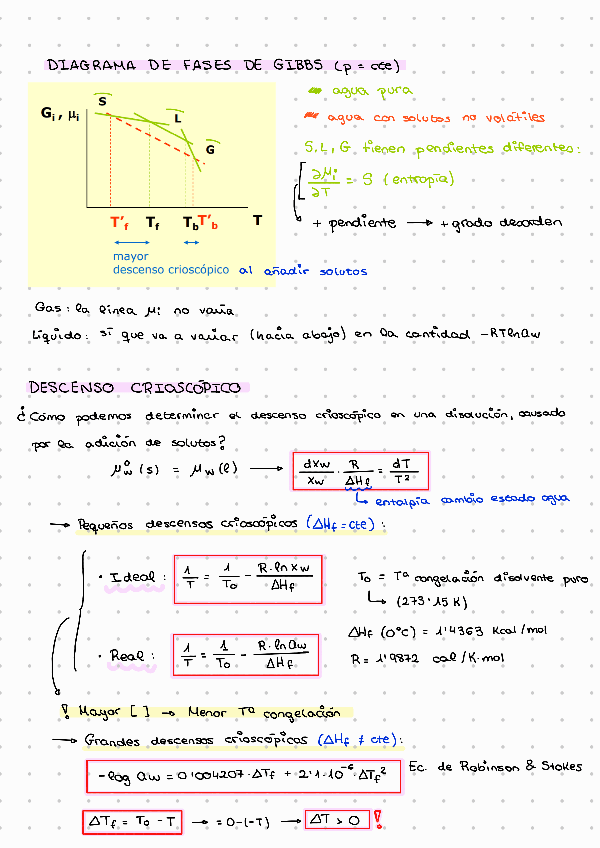 DIAGRAMA DE FASES DE GIBBS (p = cte)
S
Gi , μi
L
G
T'f Tf Tb T'b T
mayor
descenso crioscópico al añadir solutos
agua pura
agua con solutos no volátiles
S, L, G tienen pendientes diferentes:
∂μi/∂T = - S (entropía)
+ pendiente → + grado desorden
Gas: la línea μi no varía
Líquido: sí que va a variar (hacia abajo) en la cantidad -RTlnaw
DESCENSO CRIOSCÓPICO
¿Cómo podemos determinar el descenso crioscópico en una disolución, causado
por la adición de solutos?
μ°w (s) = μw (l) → dXw/Xw · R/ΔHf = dT/T²
entalpía cambio estado agua
→ Pequeños descensos crioscópicos (ΔHf = cte):
· Ideal: 1/T = 1/T0 - R·lnXw/ΔHf
T0 = Tª congelación disolvente puro
(273'15 K)
ΔHf (0°C) = 1'4363 Kcal/mol
· Real: 1/T = 1/T0 - R·lnaw/ΔHf
R = 1'9872 cal/K·mol
! Mayor [ ] → Menor Tª congelación
→ Grandes descensos crioscópicos (ΔHf ≠ cte):
-log aw = 0'004207·ΔTf + 2'1·10⁻⁶·ΔTf² Ec. de Robinson & Stokes
ΔTf = T0 - T → = 0-(-T) → ΔT > 0 !